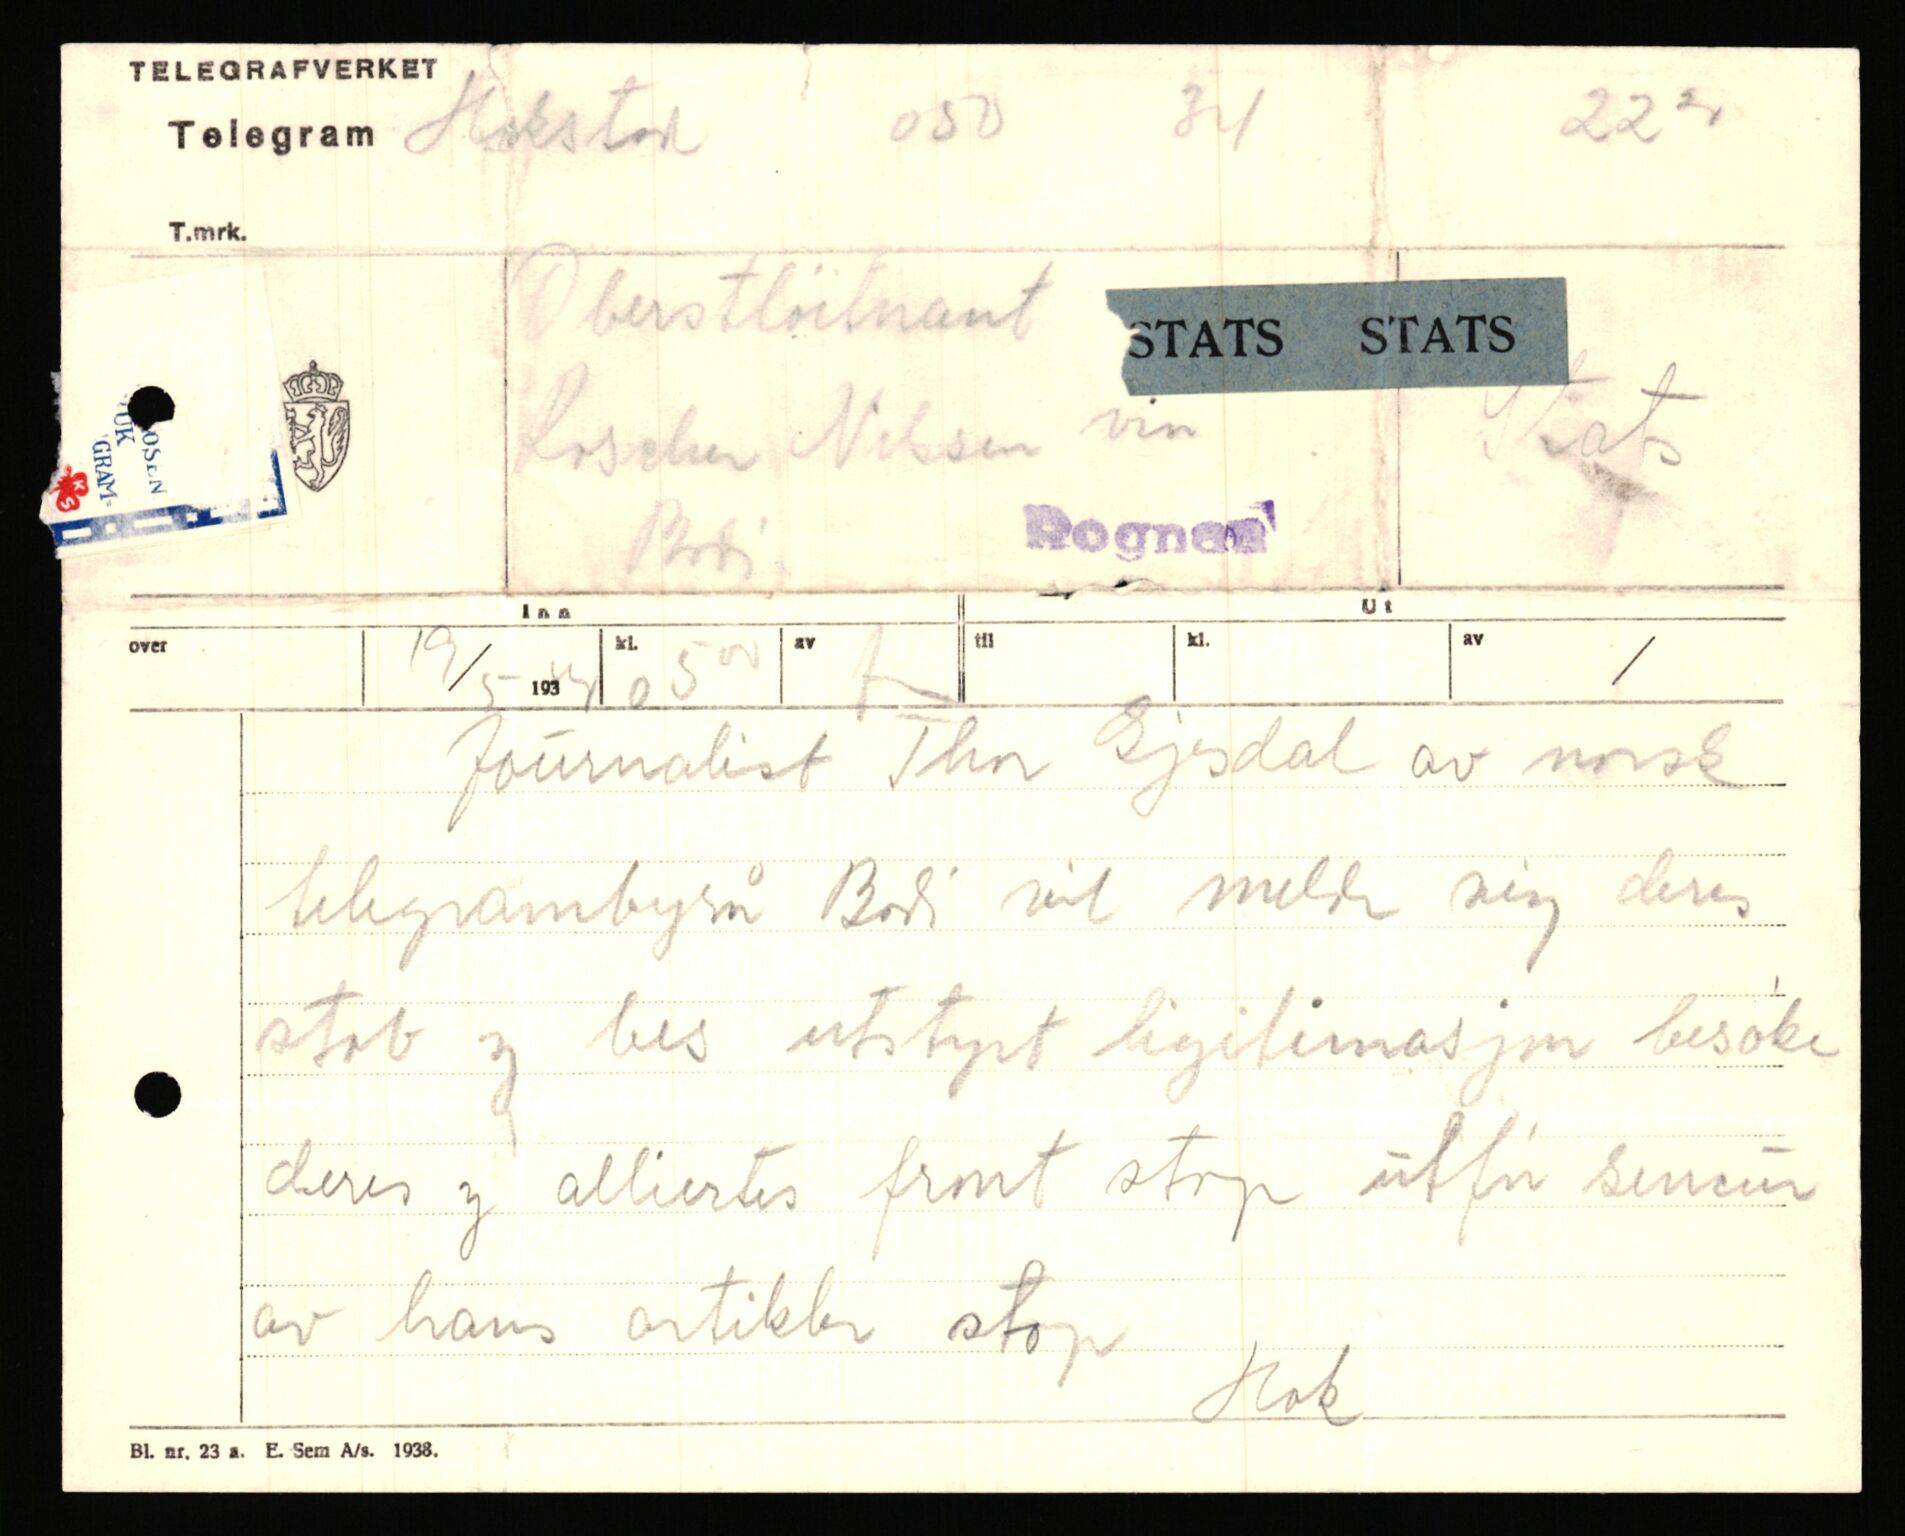 TELEGRAFVERKET
Telegram Hokstad 050 34 22
T.mrk.
Oberstløitnant
STATS STATS
Roscher Nilsen vin Stats
Bodö
Rognan
OSEN
UK
GRAM
Inn Ut
over 19/5-40 193 kl. 0500 av til kl. av /
Journalist Thor Gjesdal av norsk
telegrambyrå Bodö vil melde seg deres
stab og bes utstyrt legitimasjon besöke
deres og alliertes front stop utför sensur
av hans artikler stop
Hok
Bl. nr. 23 a. E. Sem A/s. 1938.